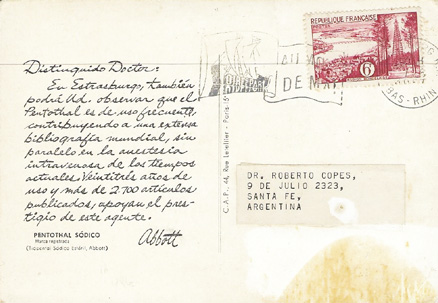 Distinguido Doctor:
En Estrasburgo, también
podrá Ud. observar que el
Pentothal es de uso frecuente,
contribuyendo a una extensa
bibliografía mundial, sin
paralelo en la anestesia
intravenosa de los tiempos
actuales. Veintitrés años de
uso y más de 2.700 artículos
publicados, apoyan el pres-
tigio de este agente.
Abbott
PENTOTHAL SÓDICO
Marca registrada
(Tiopental Sódico Estéril, Abbott)
C.A.P., 44, Rue Letellier - Paris-15e
RÉPUBLIQUE FRANÇAISE
6F
AU
DE MAI
BAS-RHIN
DR. ROBERTO COPES,
9 DE JULIO 2323,
SANTA FE,
ARGENTINA